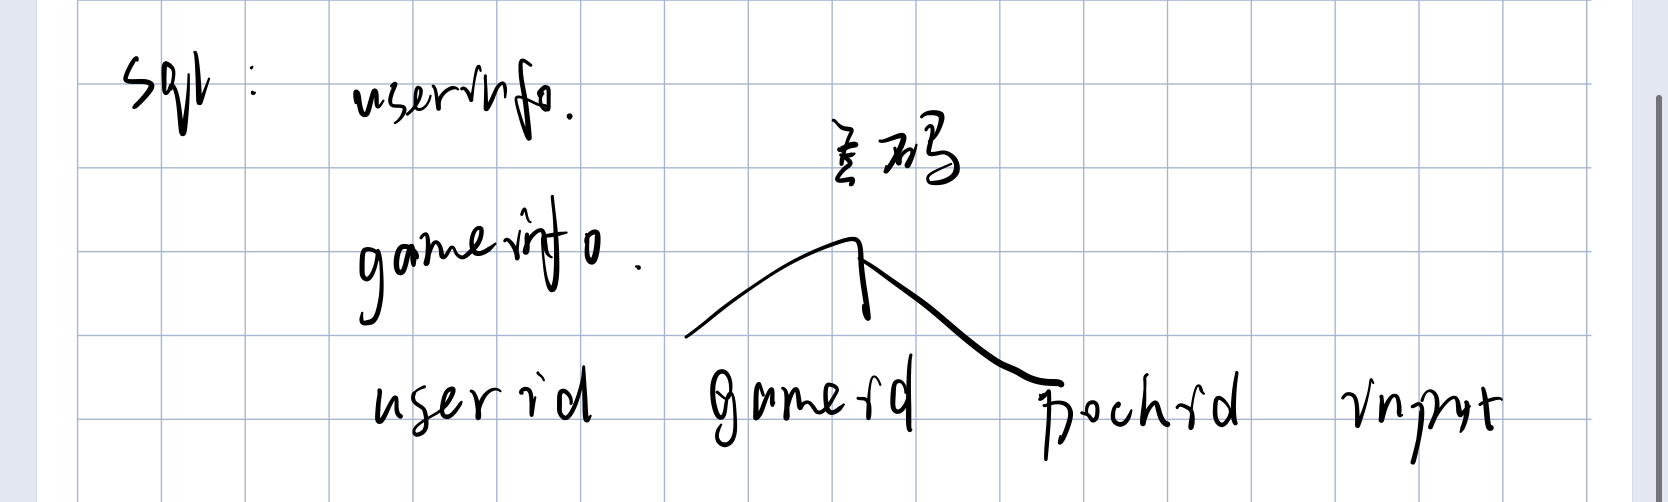 sql: userinfo.
主码
gameinfo.
userid gameid pochid input